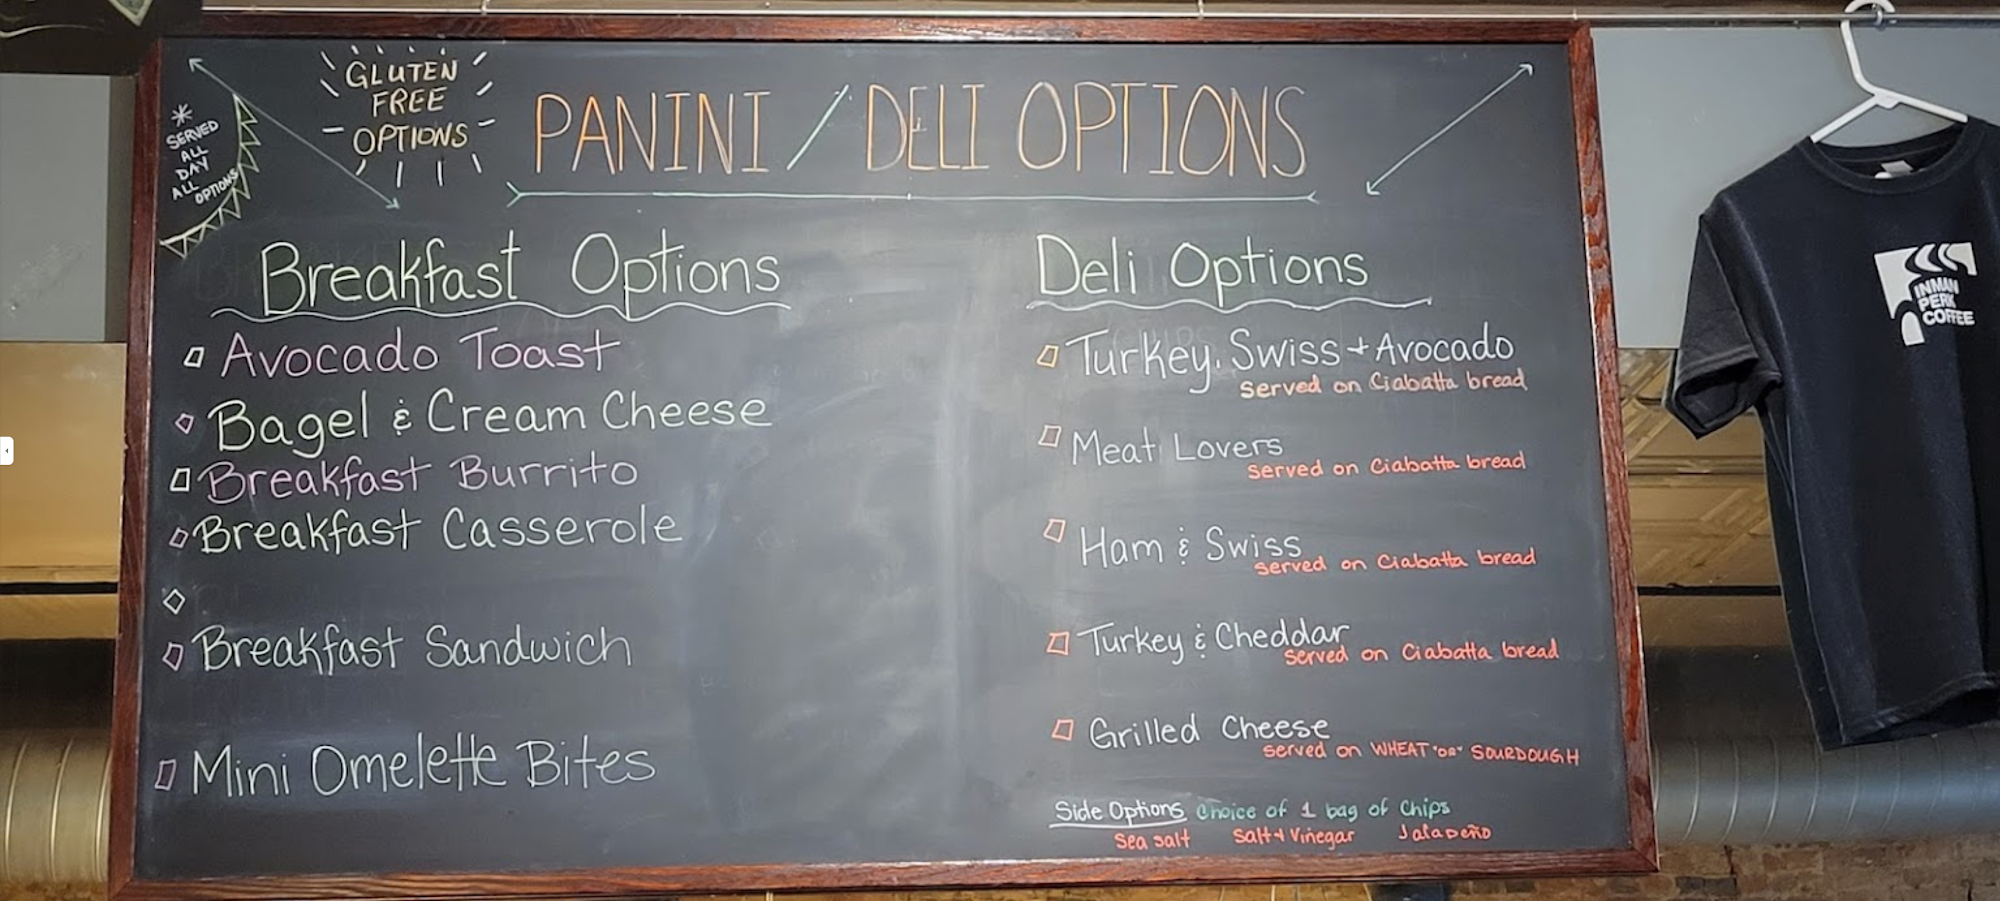 GLUTEN
FREE
OPTIONS
* SERVED
ALL
DAY
ALL
OPTIONS
PANINI / DELI OPTIONS
Breakfast Options
Avocado Toast
Bagel & Cream Cheese
Breakfast Burrito
Breakfast Casserole
Breakfast Sandwich
Mini Omelette Bites
Deli Options
Turkey, Swiss + Avocado
served on Ciabatta bread
Meat Lovers
served on Ciabatta bread
Ham & Swiss
served on Ciabatta bread
Turkey & Cheddar
served on Ciabatta bread
Grilled Cheese
served on WHEAT "OR" SOURDOUGH
Side Options Choice of 1 bag of Chips
Sea salt Salt + Vinegar Jalapeño
INMAN
PERK
COFFEE